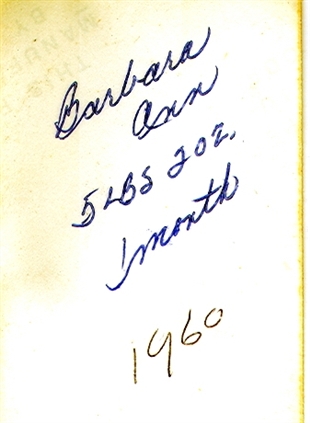 Barbara
Ann
5 LBS 2 OZ.
1 month
1960